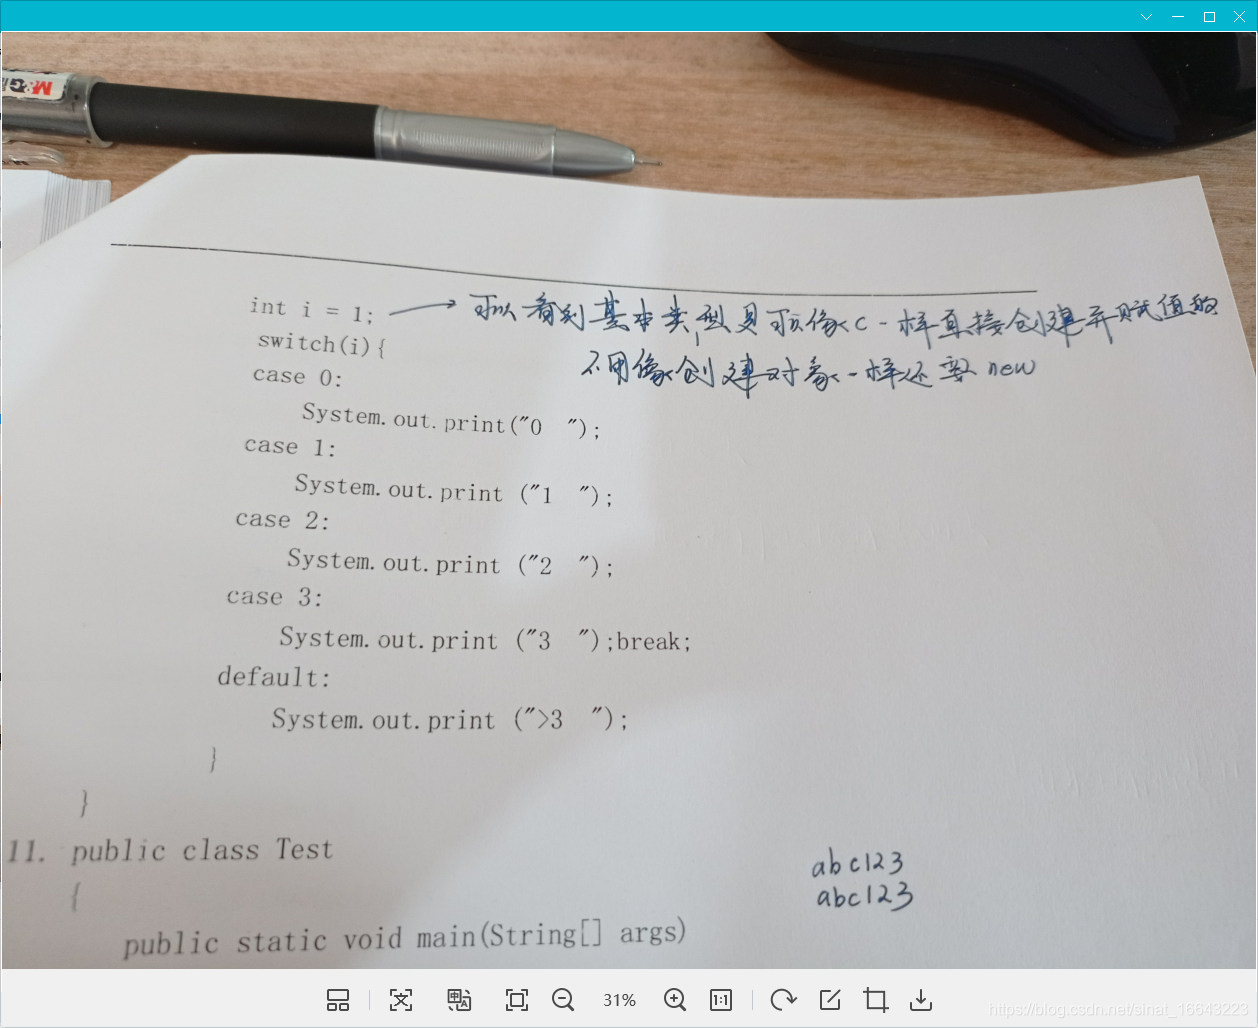 M&G
int i = 1; 可以看到基本类型是可以像C一样直接创建并赋值的
switch(i){ 不用像创建对象一样还要new
case 0:
System.out.print("0 ");
case 1:
System.out.print ("1 ");
case 2:
System.out.print ("2 ");
case 3:
System.out.print ("3 ");break;
default:
System.out.print (">3 ");
}
}
11. public class Test
{
abc123
abc123
public static void main(String[] args)
31%
1:1
https://blog.csdn.net/sinat_16643223